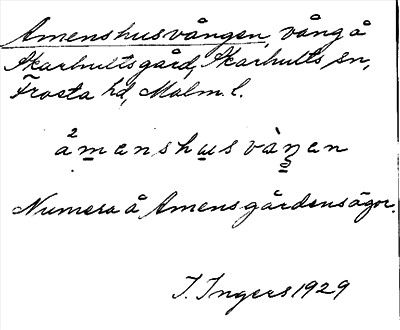 Amenshusvången, vång å
Skarhults gård, Skarhults sn,
Frosta hd, Malm. l.
²åmenshusvàŋen
Numera å Amensgårdens ägor.
I. Ingers 1929